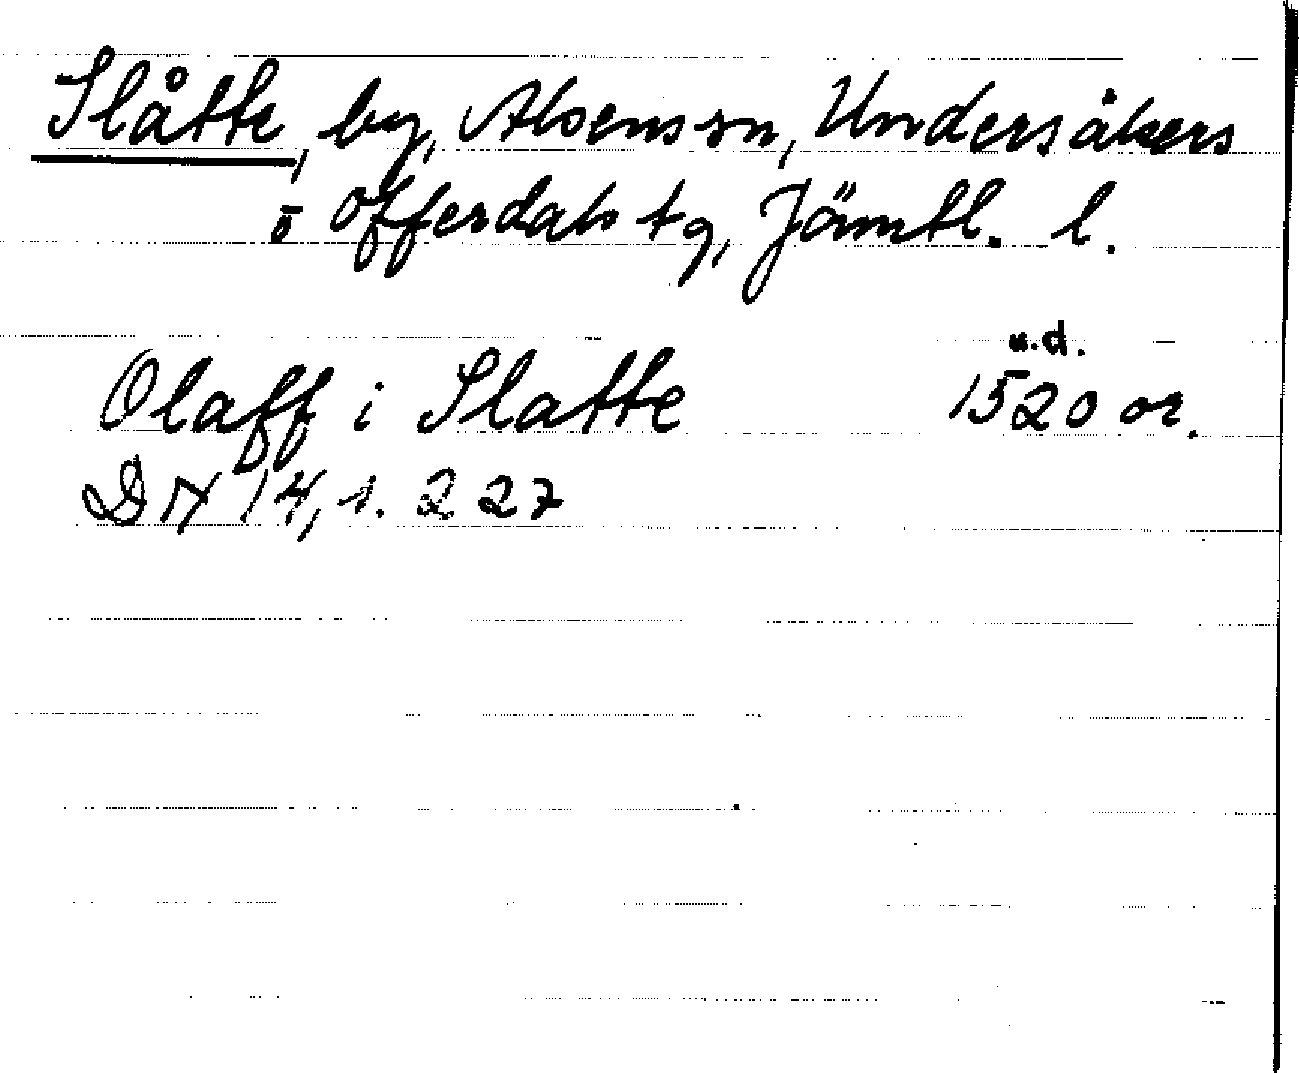 Slåtte, by, Alsens sn, Undersåkers
o Offerdals tg, Jämtl. l.
u.d.
Olaff i Slatte 1520 or.
DN 14, 1. 227